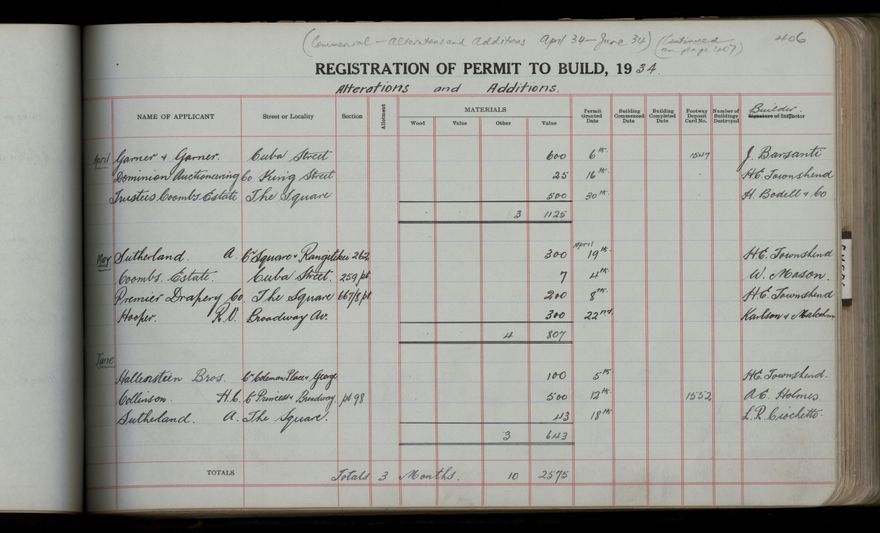 (Commercial - Alterations and Additions April 34 - June 34) (Continued on page 407) 406
REGISTRATION OF PERMIT TO BUILD, 1934.
Alterations and Additions.
NAME OF APPLICANT Street or Locality Section Allotment MATERIALS Wood Value Other Value Permit Granted Date Building Commenced Date Building Completed Date Footway Deposit Card No. Number of Buildings Destroyed Builder Signature of Inspector
April Garner & Garner. Cuba Street 600 6th. 1547 J. Barsanti
Dominion Auctioneering Co King Street 25 16th. H.E. Townshend
Trustees Coombs Estate The Square 500 30th. H. Bodell & Co
3 1125
May Sutherland. A Cr Square & Rangitikei 262 300 April 19th. H.E. Townshend
Coombs. Estate. Cuba Street. 259/pt 7 4th. W. Mason.
Premier Drapery Co. The Square 667/8 pt 200 8th. H.E. Townshend
Hooper. R.V. Broadway Av. 300 22nd. Karlson & Malcolm
4 807
June
Hallenstein Bros. Cr Coleman Place & George 100 5th. H.E. Townshend.
Collinson. H.C. Cr Princess & Broadway pt 98 500 12th. 1552 A.E. Holmes
Sutherland. A. The Square. 43 18th. L.R. Crochette.
3 643
TOTALS Totals 3 Months. 10 2575